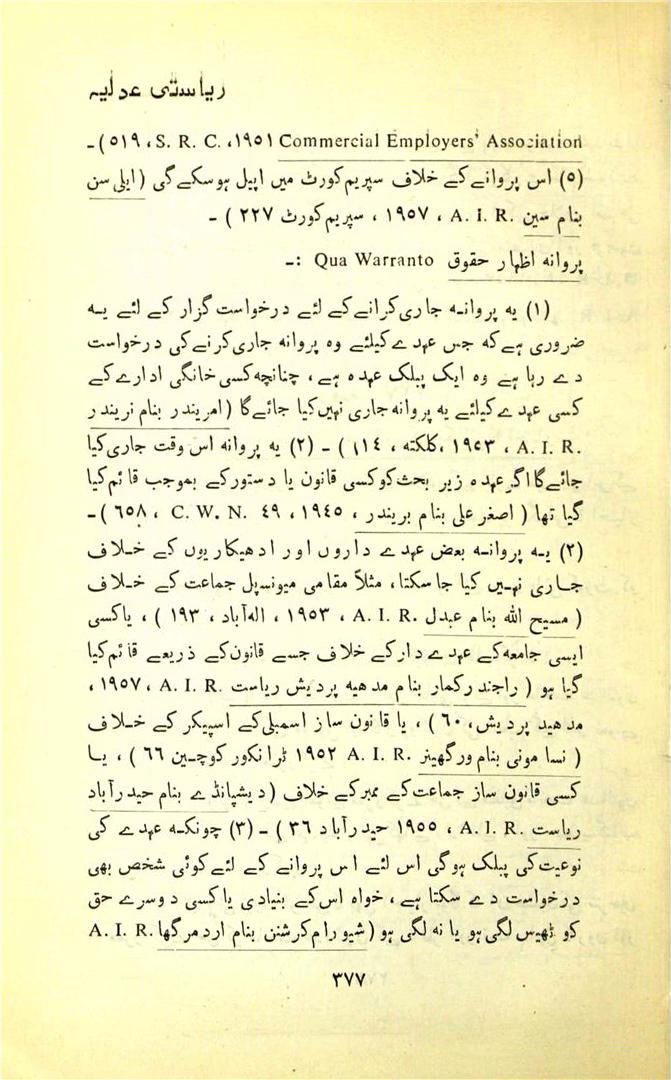 ریاستی عدلیہ
Commercial Employers' Association ۱۹۵۱، S. R. C.، ۵۱۹)۔
(۵) اس پروانے کے خلاف سپریم کورٹ میں اپیل ہوسکے گی (ایلی سن
بنام سین A. I. R. ، ۱۹۵۷ ، سپریم کورٹ ۲۲۷ ) ۔
پروانہ اظہار حقوق Qua Warranto :۔
(۱) یہ پروانہ جاری کرانے کے لئے درخواست گزار کے لئے یہ
ضروری ہے کہ جس عہدے کیلئے وہ پروانہ جاری کرنے کی درخواست
دے رہا ہے وہ ایک پبلک عہدہ ہے ، چنانچہ کسی خانگی ادارے کے
کسی عہدے کیلئے یہ پروانہ جاری نہیں کیا جائے گا (امریندر بنام نریندر
A. I. R. ، ۱۹۵۳ ،کلکتہ ، ۱۱٤ ) ۔ (۲) یہ پروانہ اس وقت جاری کیا
جائے گا اگر عہدہ زیر بحث کو کسی قانون یا دستور کے بموجب قائم کیا
گیا تھا ( اصغر علی بنام بریندر ، ۱۹٤۵ ، ٤۹ C. W. N. ، ۶۵۸ )۔
(۲) یہ پروانہ بعض عہدے داروں اور ادھیکاریوں کے خلاف
جاری نہیں کیا جاسکتا ، مثلاً مقامی میونسپل جماعت کے خلاف
( مسیح اللہ بنام عبدل A. I. R. ، ۱۹۵۳ ، الہ آباد ، ۱۹۳ ) ، یا کسی
ایسی جامعہ کے عہدے دار کے خلاف جسے قانون کے ذریعے قائم کیا
گیا ہو ( راجندر کمار بنام مدھیہ پردیش ریاست A. I. R. ، ۱۹۵۷ ،
مدھیہ پردیش، ۶۰ ) ، یا قانون ساز اسمبلی کے اسپیکر کے خلاف
( نسا مونی بنام ورگھیئز A. I. R. ۱۹۵۲ ٹراونکور کوچین ۶۶ ) ، یا
کسی قانون ساز جماعت کے ممبر کے خلاف ( دیشپانڈے بنام حیدرآباد
ریاست A. I. R. ، ۱۹۵۵ حیدرآباد ۳۶ ) ۔ (۳) چونکہ عہدے کی
نوعیت کی پبلک ہوگی اس لئے اس پروانے کے لئے کوئی شخص بھی
درخواست دے سکتا ہے ، خواہ اس کے بنیادی یا کسی دوسرے حق
کو ٹھیس لگی ہو یا نہ لگی ہو ( شیو رام کرشنن بنام اردمرگھا A. I. R.
۳۷۷